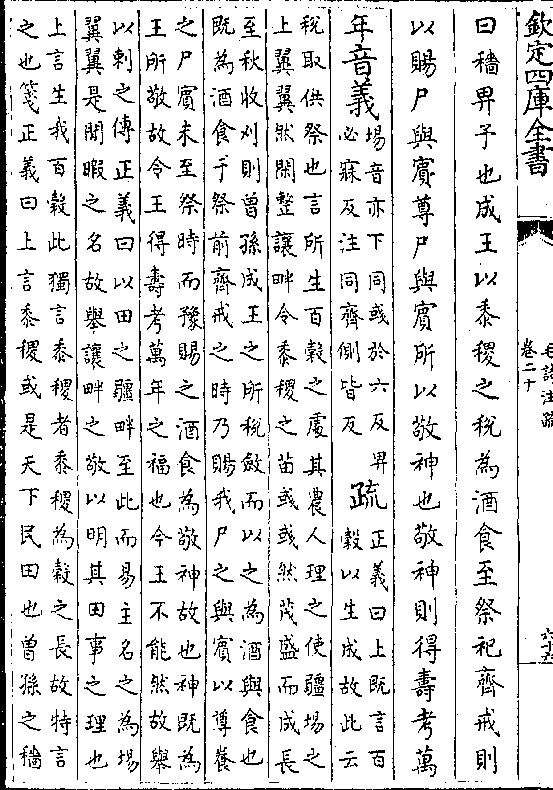 欽定四庫全書
毛詩注疏
卷二十
六十五
曰穡畀予也成王以黍稷之税為酒食至祭祀齊戒則
以賜尸與賓尊尸與賓所以敬神也敬神則得壽考萬
年音義埸音亦下同彧於六反畀
必寐反注同齊側皆反
疏正義曰上既言百
穀以生成故此云
税取供祭也言所生百穀之處其農人理之使疆埸之
上翼翼然閑整讓畔令黍稷之苗彧彧然茂盛而成長
至秋收刈則曾孫成王之所税斂而以之為酒與食也
既為酒食于祭前齊戒之時乃賜我尸之與賓以尊養
之尸賓未至祭時而豫賜之酒食為敬神故也神既為
王所敬故令王得壽考萬年之福也今王不能然故舉
以刺之傳正義曰以田之疆畔至此而易主名之為埸
翼翼是閒暇之名故舉讓畔之敬以明其田事之理也
上言生我百穀此獨言黍稷者黍稷為穀之長故特言
之也箋正義曰上言黍稷或是天下民田也曾孫之穡